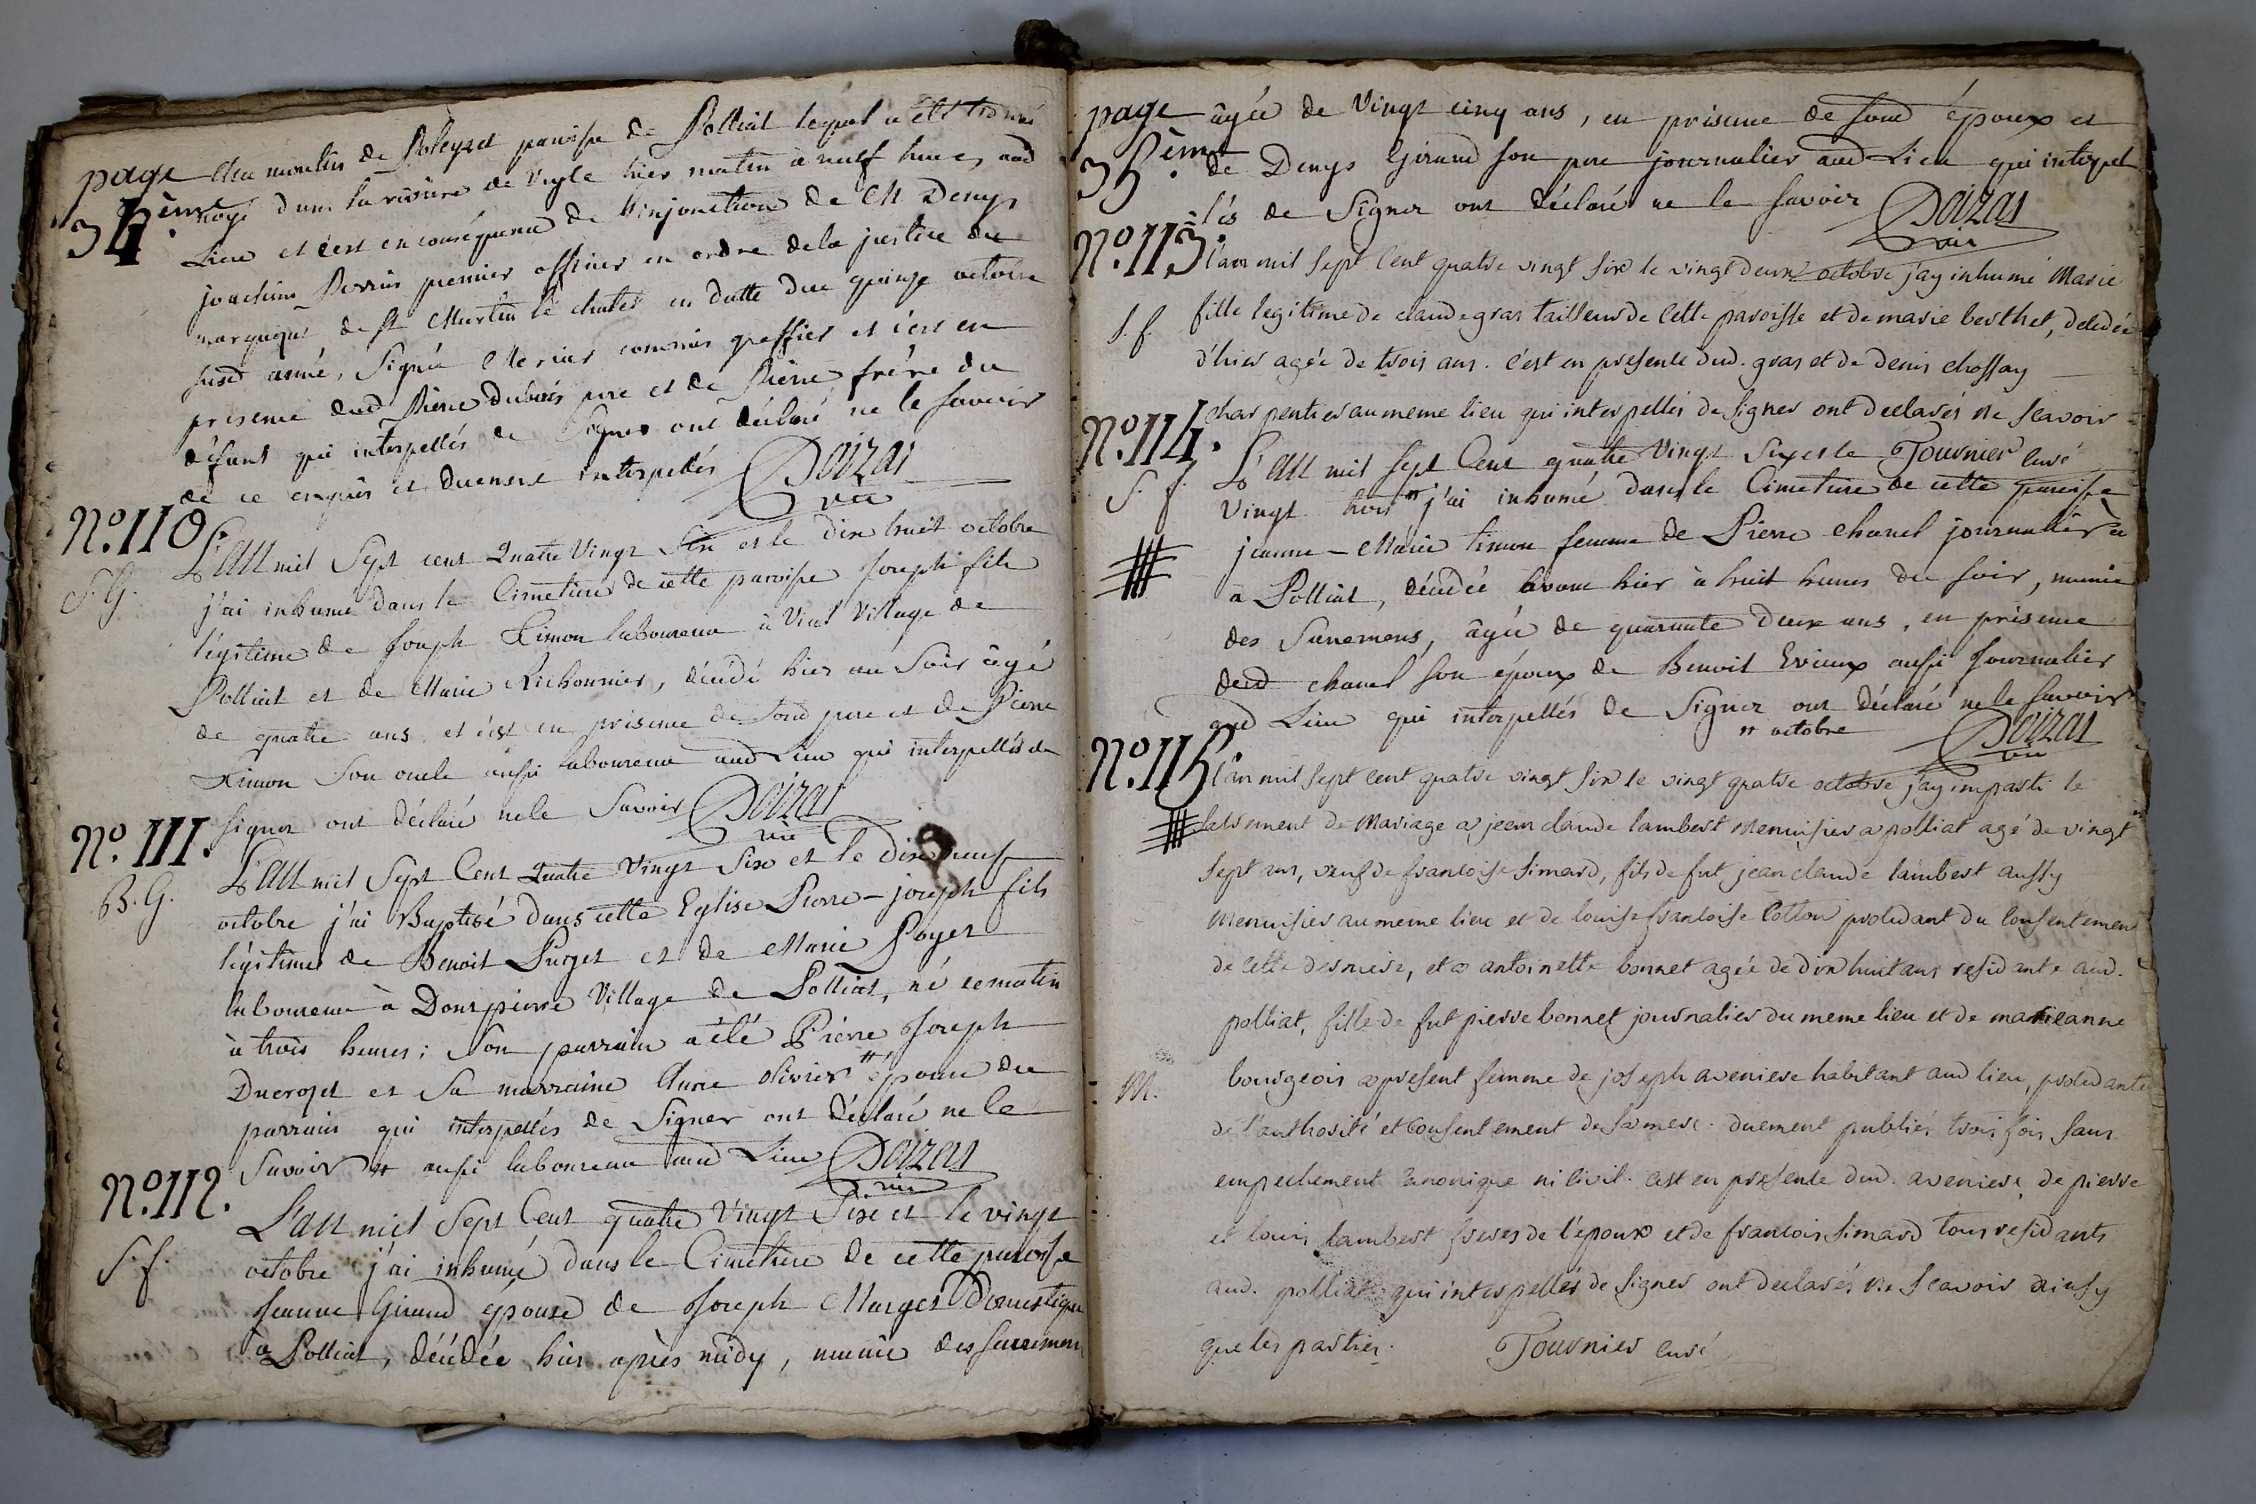 page
34.ème
au moulin de Poleyset paroisse de Polliat lequel a été trouvé
noyé dans la rivière de Veyle hier matin à neuf heures, aud
Lieu et c'est en conséquence de l'injonction de M Denys
joachim Perrin premier officier en ordre de la justice du
marquisat de St Martin le chatel en datte du quinze octobre
susd année, Signée Merias commis greffier et c'est en
présence dud Pierre Dubois pere et de Pierre frére du
défunt qui interpellés de Signer ont déclaré ne le savoir
de ce enquis et duement interpellés Doizas
vic
N.º 110.
S. G.
L'an mil Sept cent Quatre Vingt Six et le dix huit octobre
j'ai inhumé dans le Cimetiere de cette paroisse Joseph fils
légitime de Joseph Limon laboureur à Vial Village de
Polliat et de Marie Richonnier, décédé hier au Soir âgé
de quatre ans et c'est en présence de Sond pere et de Pierre
Limon Son oncle aussi laboureur aud Lieu qui interpellés de
signer ont déclaré ne le Savoir Doizas
vic
N.º 111.
B. G.
L'an mil Sept Cent Quatre Vingt Six et le Dix neuf
octobre j'ai Baptisé dans cette Eglise Pierre-joseph fils
légitime de Benoit Purget et de Marie Poyet
laboureur à Dompierre Village de Polliat, né ce matin
à trois heures; Son parrain a été Pierre Joseph
Ducroset et Sa marraine Anne olivier # épouse du
parrain qui interpellés de Signer ont déclaré ne le
Savoir # aussi laboureur aud Lieu Doizas
vic
N.º 112.
S. f.
L'an mil Sept Cent quatre Vingt Six et le vingt
octobre j'ai inhumé dans le Cimetiere de cette paroisse
Jeanne Giraud épouse de Joseph Marget Domestique
à Polliat, décédée hier après midy, munie des sacremens
page
35.ème
âgée de Vingt cinq ans, en présence de sond époux et
de Denys Giraud son pere journalier aud Lieu qui interpel
lés de Signer ont déclaré ne le savoir Doizas
vic
N.º 113.
S. f.
l'an mil sept cent quatre vingt six le vingt deux octobre j'ay inhumé Marie
fille legitime de claude gras tailleur de cette paroisse et de marie berthet, decedée
d'hier agée de trois ans. c'est en presence dud. gras et de denis chossay
charpentier au meme lieu qui interpellés de signer ont declarés ne scavoir
Tournier curé
N.º 114.
S. f.
L'an mil sept Cent quatre Vingt Six et le
Vingt trois # j'ai inhumé dans le Cimetiere de cette paroisse
jeanne-Marie Limon femme de Pierre chanel journalier
à Polliat, décédée avant hier à huit heures du soir, munie
des Sacremens, âgée de quarante deux ans, en présence
dud chanel son époux de Benoit Evieux aussi Journalier
aud Lieu qui interpellés de Signer ont déclaré ne le savoir
# octobre Doizas
vic
N.º 115.
l'an mil sept cent quatre vingt six le vingt quatre octobre j'ay imparti le
sacrement de Mariage a jean claude lambert Menuisier a polliat agé de vingt
sept ans, veuf de francoise simard, fils de fut jean claude lambert aussy
Menuisier au meme lieu et de louise francoise cotton procedant du consentement
de cette derniere, et a antoinette bonnet agée de dix huit ans residante aud.
polliat, fille de fut pierre bonnet journalier du meme lieu et de marieanne
M.
bourgeois a present femme de joseph aveniere habitant aud lieu, procedante
de l'authorité et consentement de sa mere. duement publiés trois fois sans
empechement canonique ni civil. c'est en presence dud. aveniere, de pierre
et louis lambert freres de l'époux et de francois simard tous residants
aud. polliat qui interpellés de signer ont declarés ne scavoir ainsy
que les parties. Tournier curé